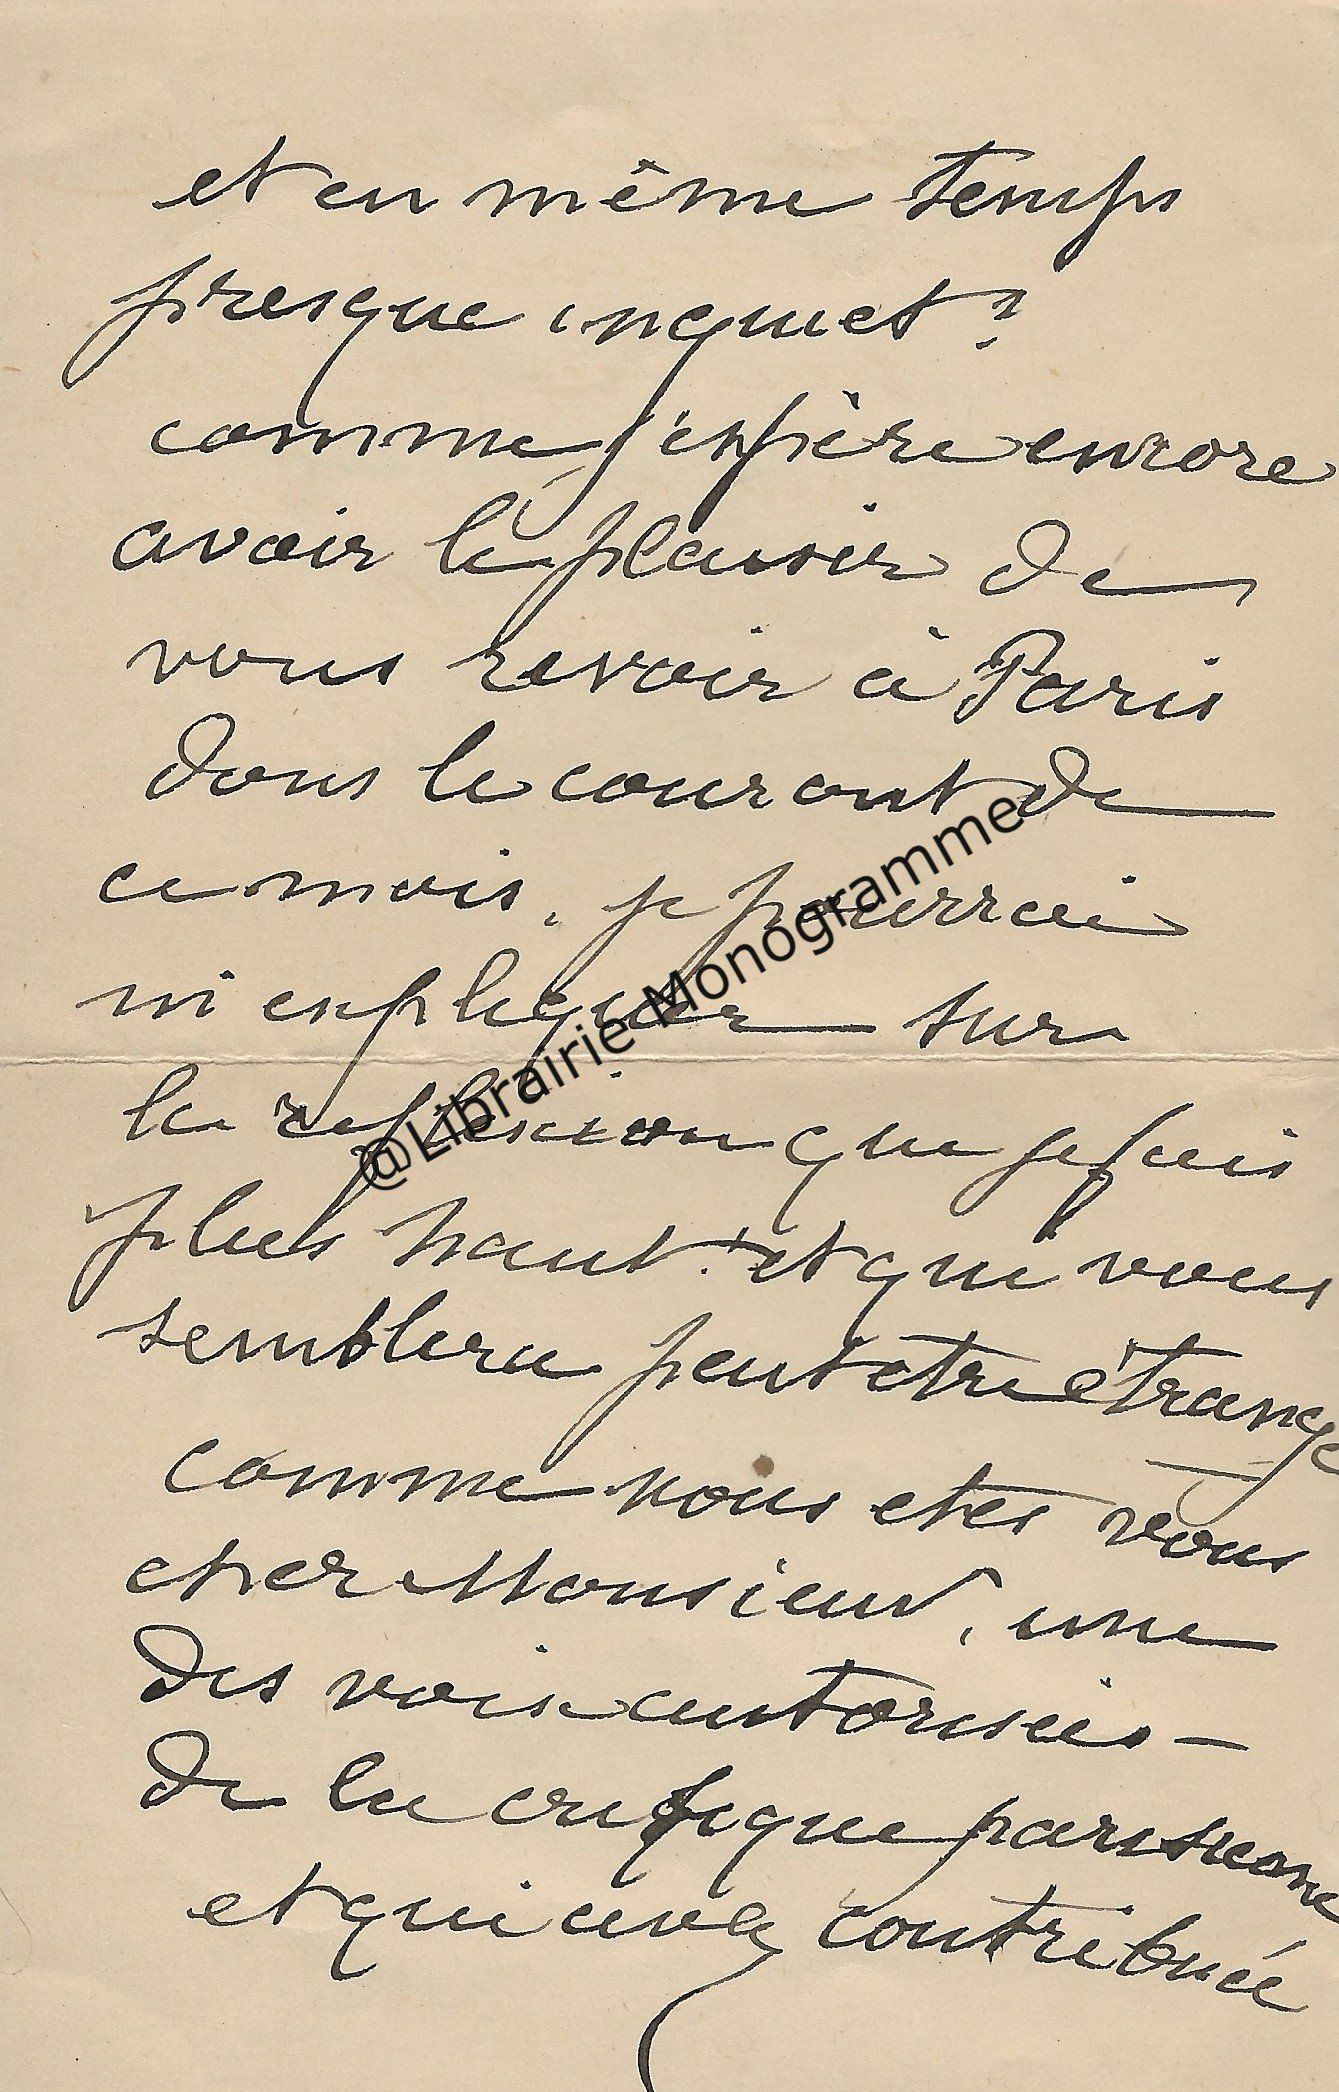 et en même temps
presque inquiet?
comme j'espère encore
avoir le plaisir de
vous revoir à Paris
dans le courant de
ce mois, je pourrai
m'expliquer sur
la reflexion que je fais
plus haut. et qui vous
semblera peut etre étrange
comme vous etes vous
cher Monsieur, une
des voix autorisées -
de la critique parisienne
et qui avez contribuée
@Librairie Monogramme